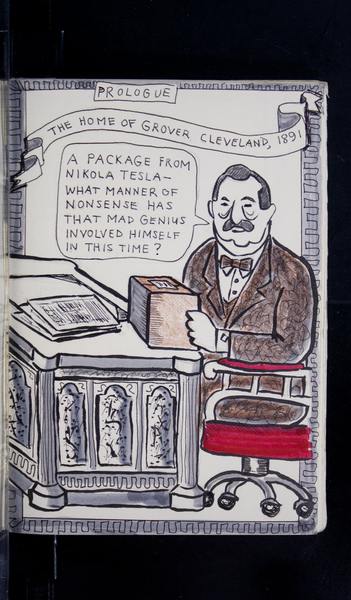 PROLOGUE
THE HOME OF GROVER CLEVELAND, 1891
A PACKAGE FROM
NIKOLA TESLA—
WHAT MANNER OF
NONSENSE HAS
THAT MAD GENIUS
INVOLVED HIMSELF
IN THIS TIME?